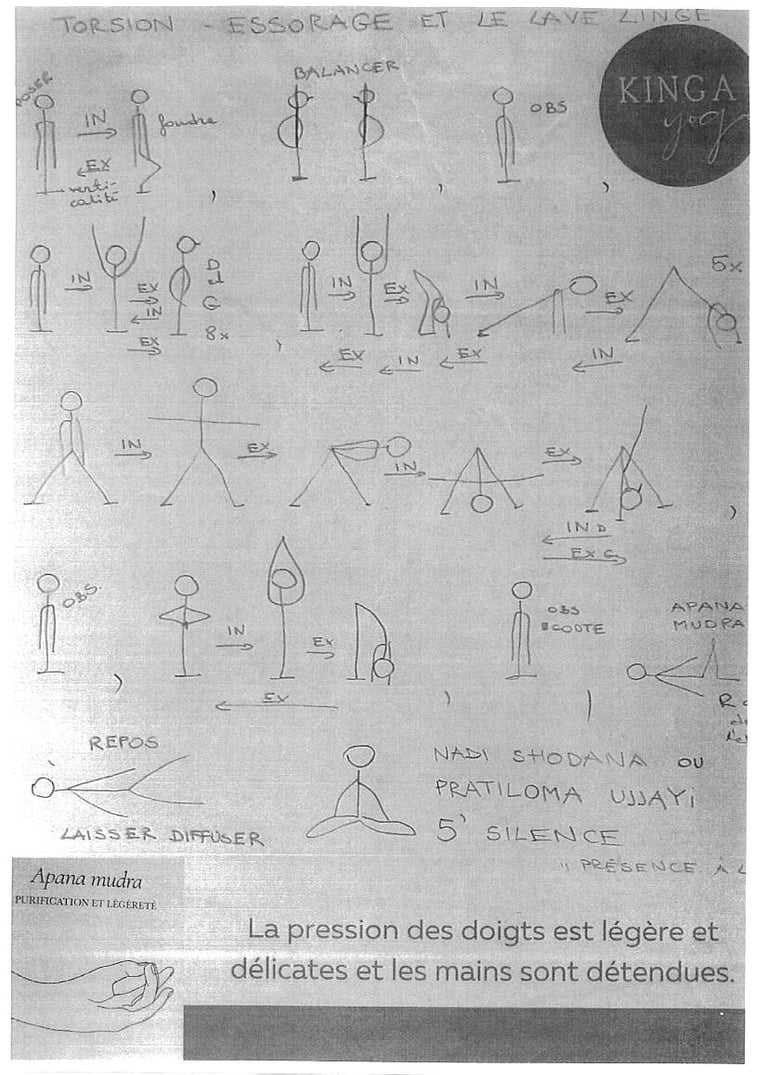 TORSION - ESSORAGE ET LE LAVE LINGE
KINGA
yog
POSER
IN
EX
verti-
calité
foudre
,
BALANCER
,
OBS
,
IN
EX
IN
EX
D
et
G
8x
,
IN
EX
IN
EX
5x
EX
IN
EX
IN
IN
EX
IN
EX
,
IN D
EX G
OBS.
,
IN
EX
EX
,
OBS
ECOUTE
APANA
MUDRA
R
REPOS
LAISSER DIFFUSER
NADI SHODANA OU
PRATILOMA UJJAYi
5' SILENCE
" PRÉSENCE À L
Apana mudra
PURIFICATION ET LÉGÈRETÉ
La pression des doigts est légère et
délicates et les mains sont détendues.